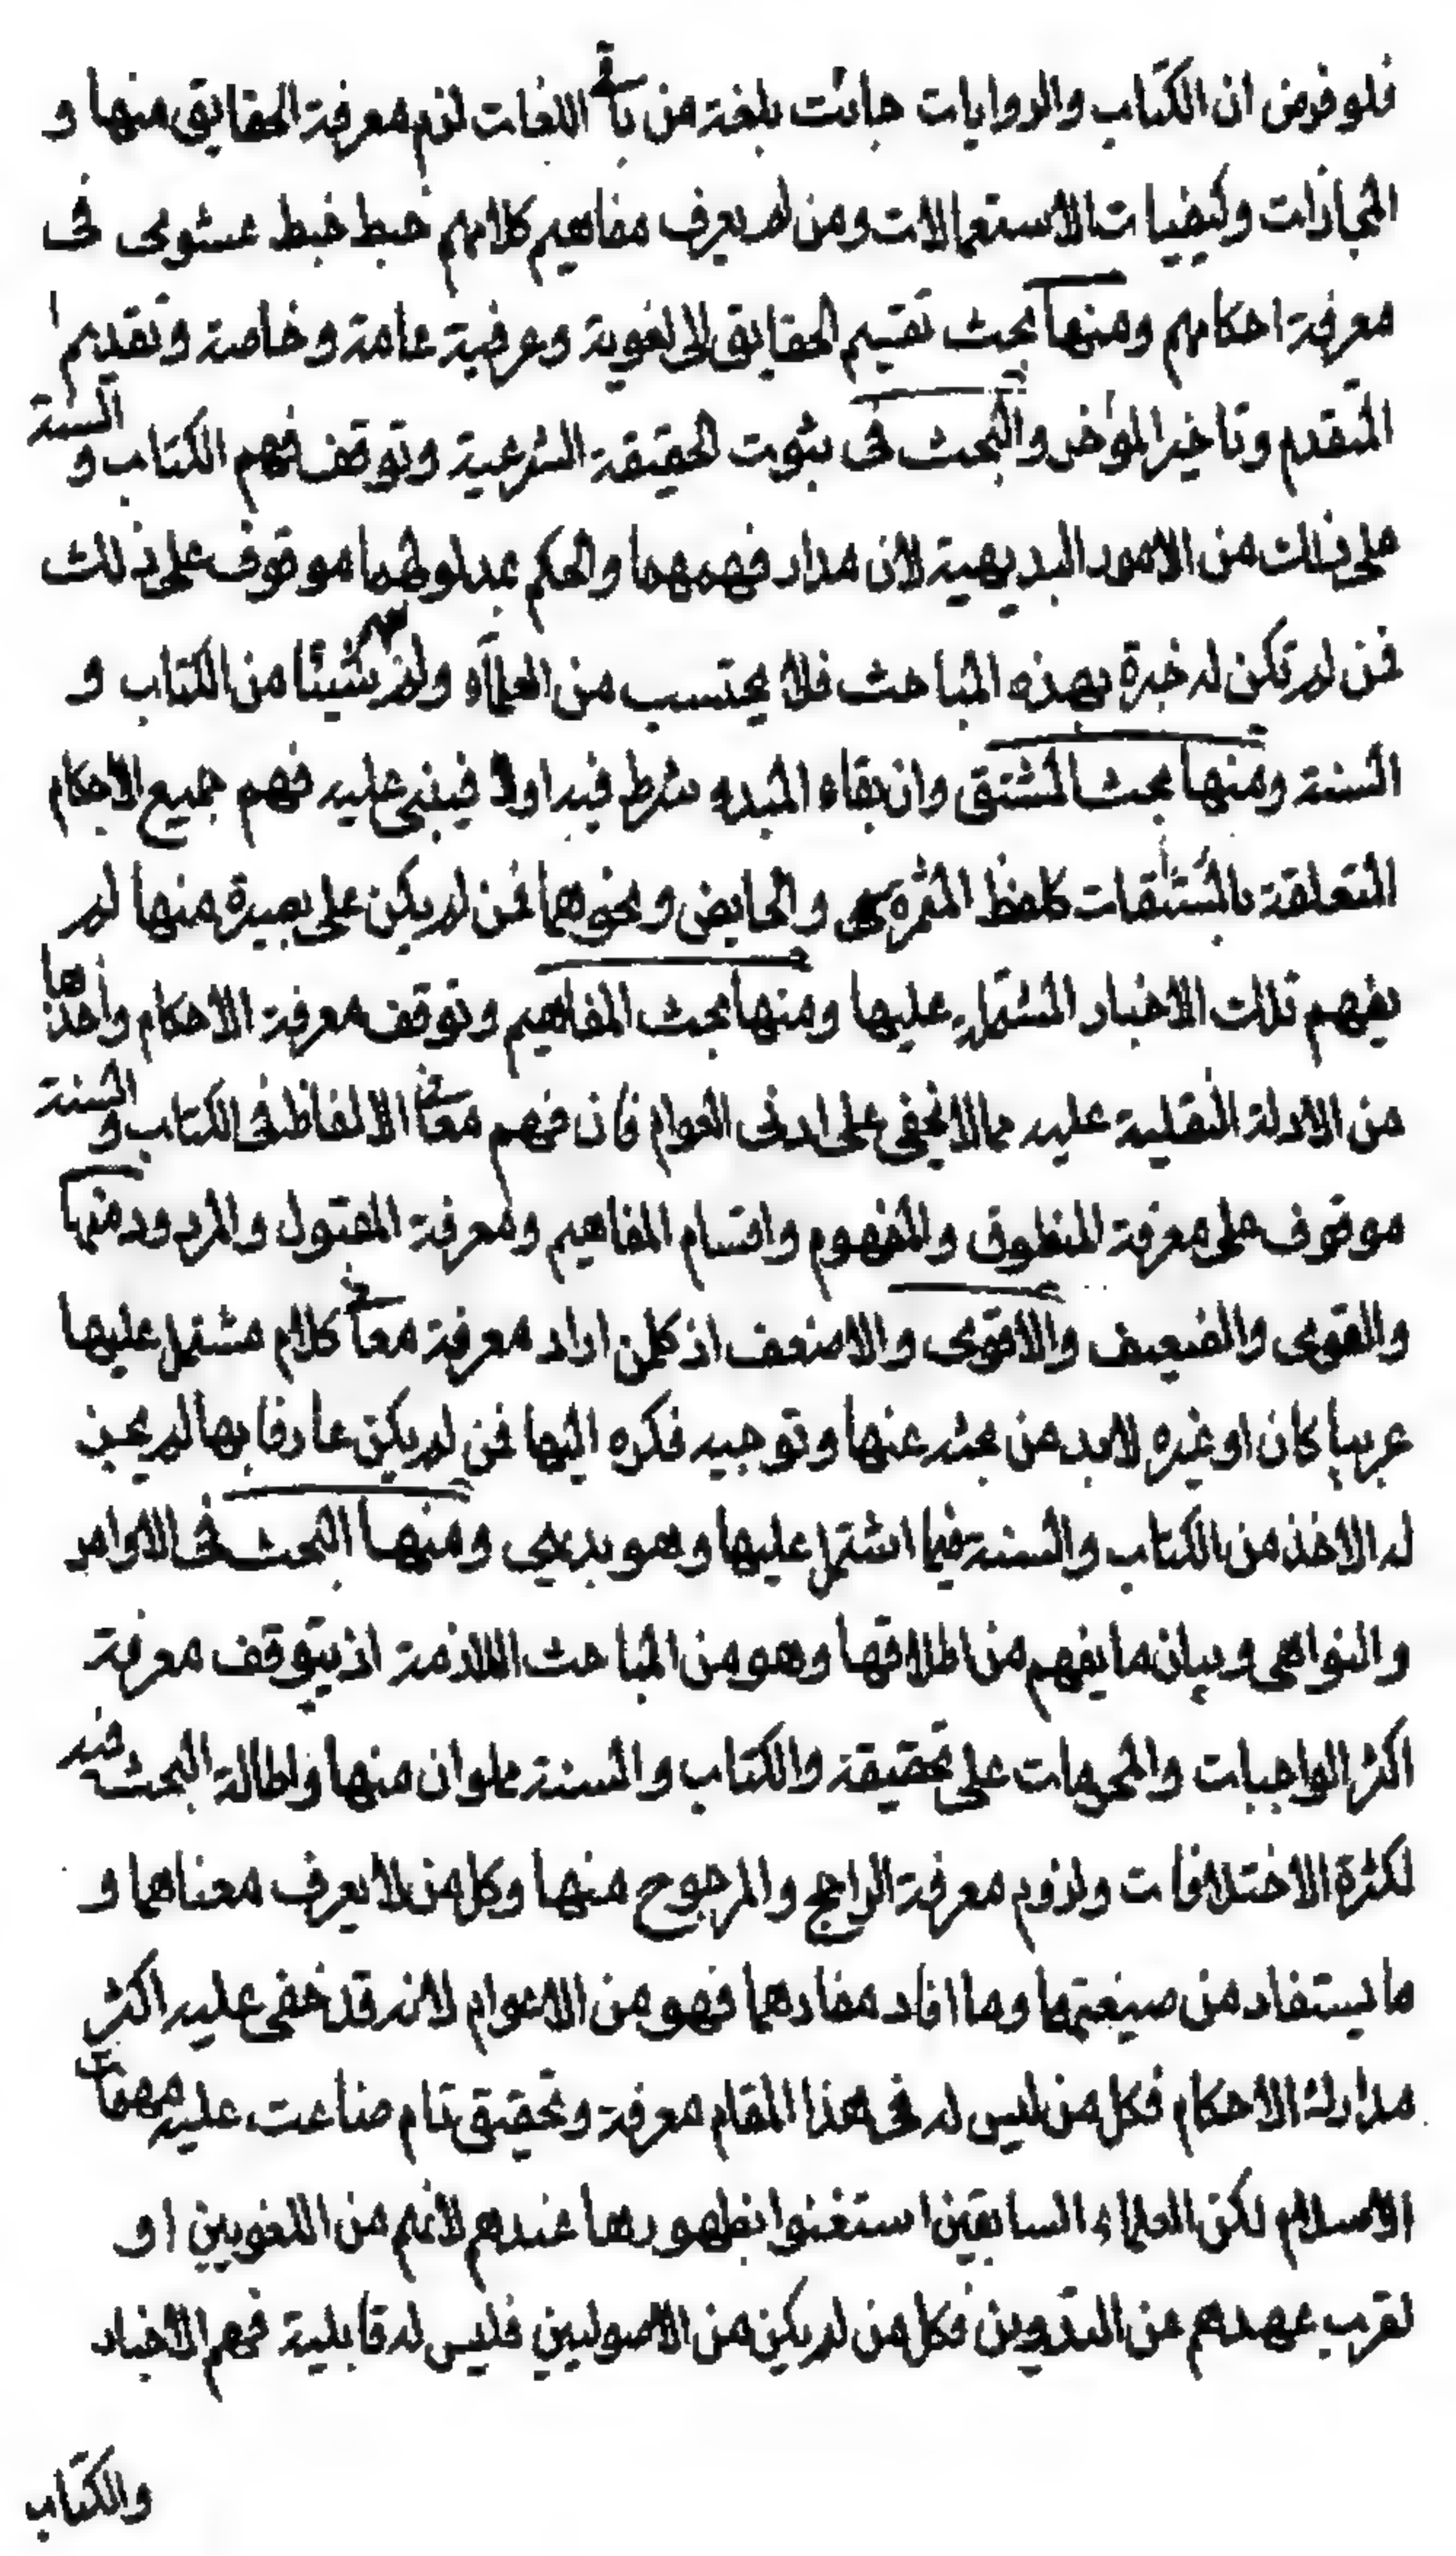 فلو فرض ان الكتاب والروايات جائت بلغة من باقى اللغات لزم معرفة الحقايق منها و
المجازات وكيفيات الاستعمالات ومن لم يعرف مفاهيم كلامهم خبط خبط عشوى فى
معرفة احكامهم ومنها بحث تقسيم الحقايق الى لغوية وعرفية عامة وخاصة وتقديم
المتقدم وتاخير المؤخر والبحث فى ثبوت الحقيقة الشرعية وتوقف فهم الكتاب والسنة
على ذلك من الامور البديهية لان مدار فهمهما والحكم بمدلولهما موقوف على ذلك
فمن لم تكن له خبرة بهذه المباحث فلا يحتسب من العلمآء ولم يفهم شيئا من الكتاب و
السنة ومنها بحث المشتق وان بقاء المبدء شرط فيه اولا فيبنى عليه فهم جميع الاحكام
المتعلقة بالمشتقات كلفظ المثمرة والحايض ونحوهما فمن لم يكن على بصيرة منها لم
يفهم تلك الاخبار المشتمل عليها ومنها بحث المفاهيم وتوقف معرفة الاحكام واخذها
من الادلة النقلية عليه مما لا يخفى على ادنى العوام فان فهم معانى الالفاظ فى الكتاب والسنة
موقوف على معرفة المنطوق والمفهوم واقسام المفاهيم ومعرفة المقبول والمردود منها
والقوى والضعيف والاقوى والاضعف اذ كل من اراد معرفة معانى كلام مشتمل عليها
عربيا كان او غيره لابد من بحثه عنها وتوجيه فكره اليها فمن لم يكن عارفا بها لم يجز
له الاخذ من الكتاب والسنة فيما اشتمل عليها وهو بديهى ومنها البحث فى الاوامر
والنواهى وبيان ما يفهم من اطلاقها وهو من المباحث اللازمة اذ يتوقف معرفة
اكثر الواجبات والمحرمات على تحقيقة والكتاب والسنة مملوان منها واطالة البحث فيه
لكثرة الاختلافات ولزوم معرفة الراجح والمرجوح منها وكل من لا يعرف معناهما و
ما يستفاد من صيغتهما وما افاد مفادهما فهو من الاعوام لانه قد خفى عليه اكثر
مدارك الاحكام فكل من ليس له فى هذا المقام معرفة وتحقيق تام ضاعت عليه مهمات
الاسلام لكن العلماء السابقين استغنوا بظهورها عندهم لانهم من اللغويين او
لقرب عهدهم من التدوين فكل من لم يكن من الاصوليين فليس له قابلية فهم الاخبار
والكتاب